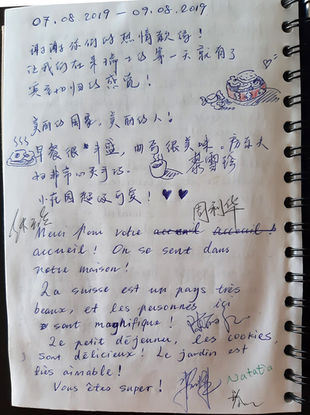 07.08.2019 — 09.08.2019
谢谢你们的热情款待！
让我们在瑞士的第一天就有了
宾至如归的感觉！
美丽的国家，美丽的人！
早餐很丰盛，曲奇很美味。房东夫
妇非常心灵手巧。
小花园超级可爱！
周利华
Merci pour votre accueil accueil!
accueil! On se sent dans
notre maison!
La suisse est un pays très
beaux, et les personnes ici
sont magnifique!
Le petit déjeuner, les cookies,
sont délicieux! Le jardin est
très aimable!
Vous êtes super!
Natalia